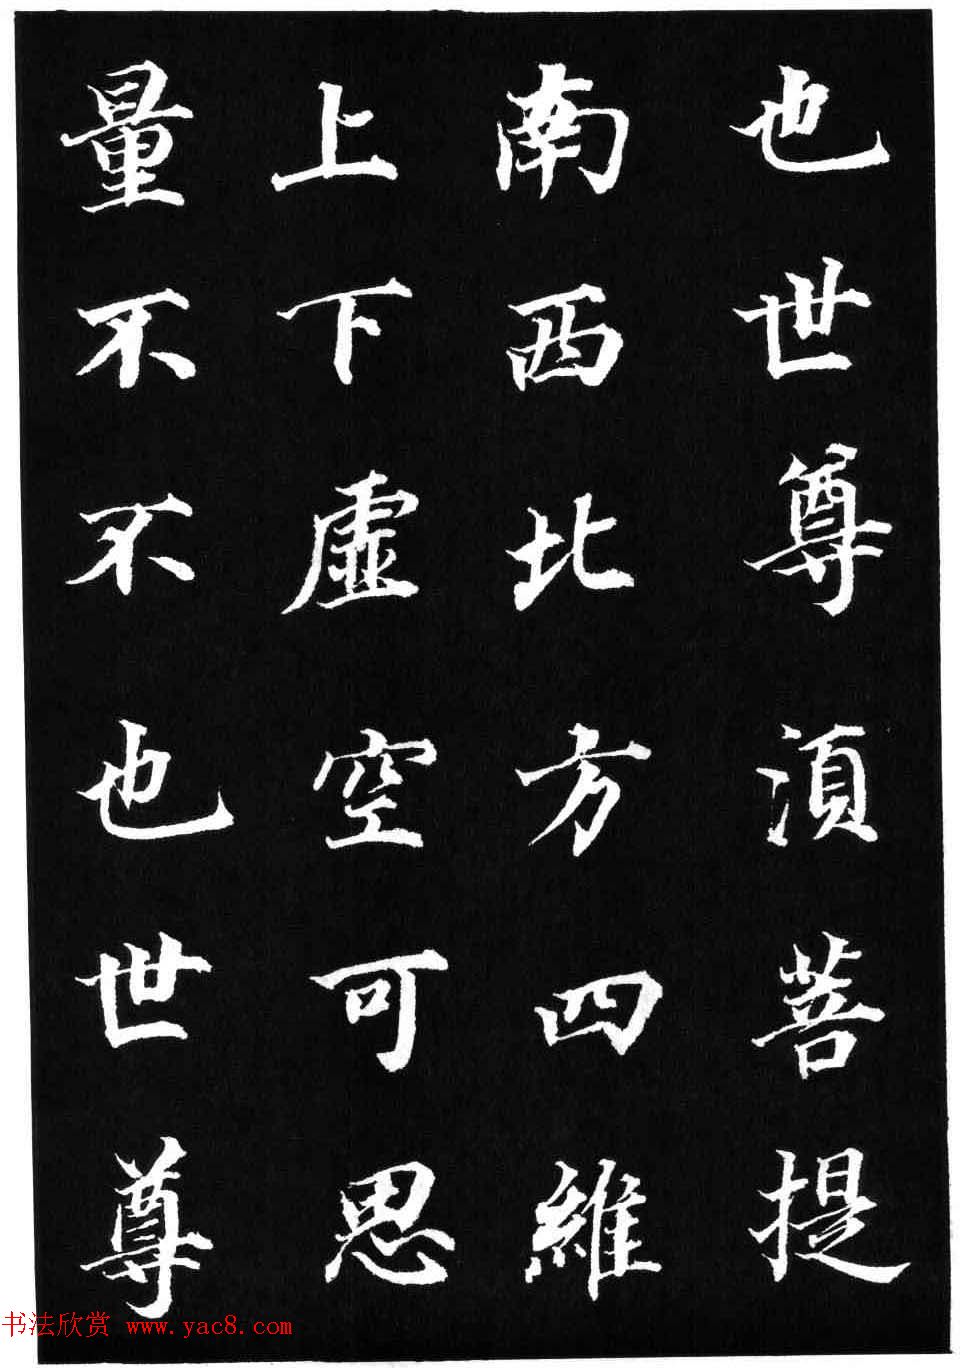 也世尊湏菩提
南西北方四維
上下虛空可思
量不不也世尊
书法欣赏 www.yac8.com